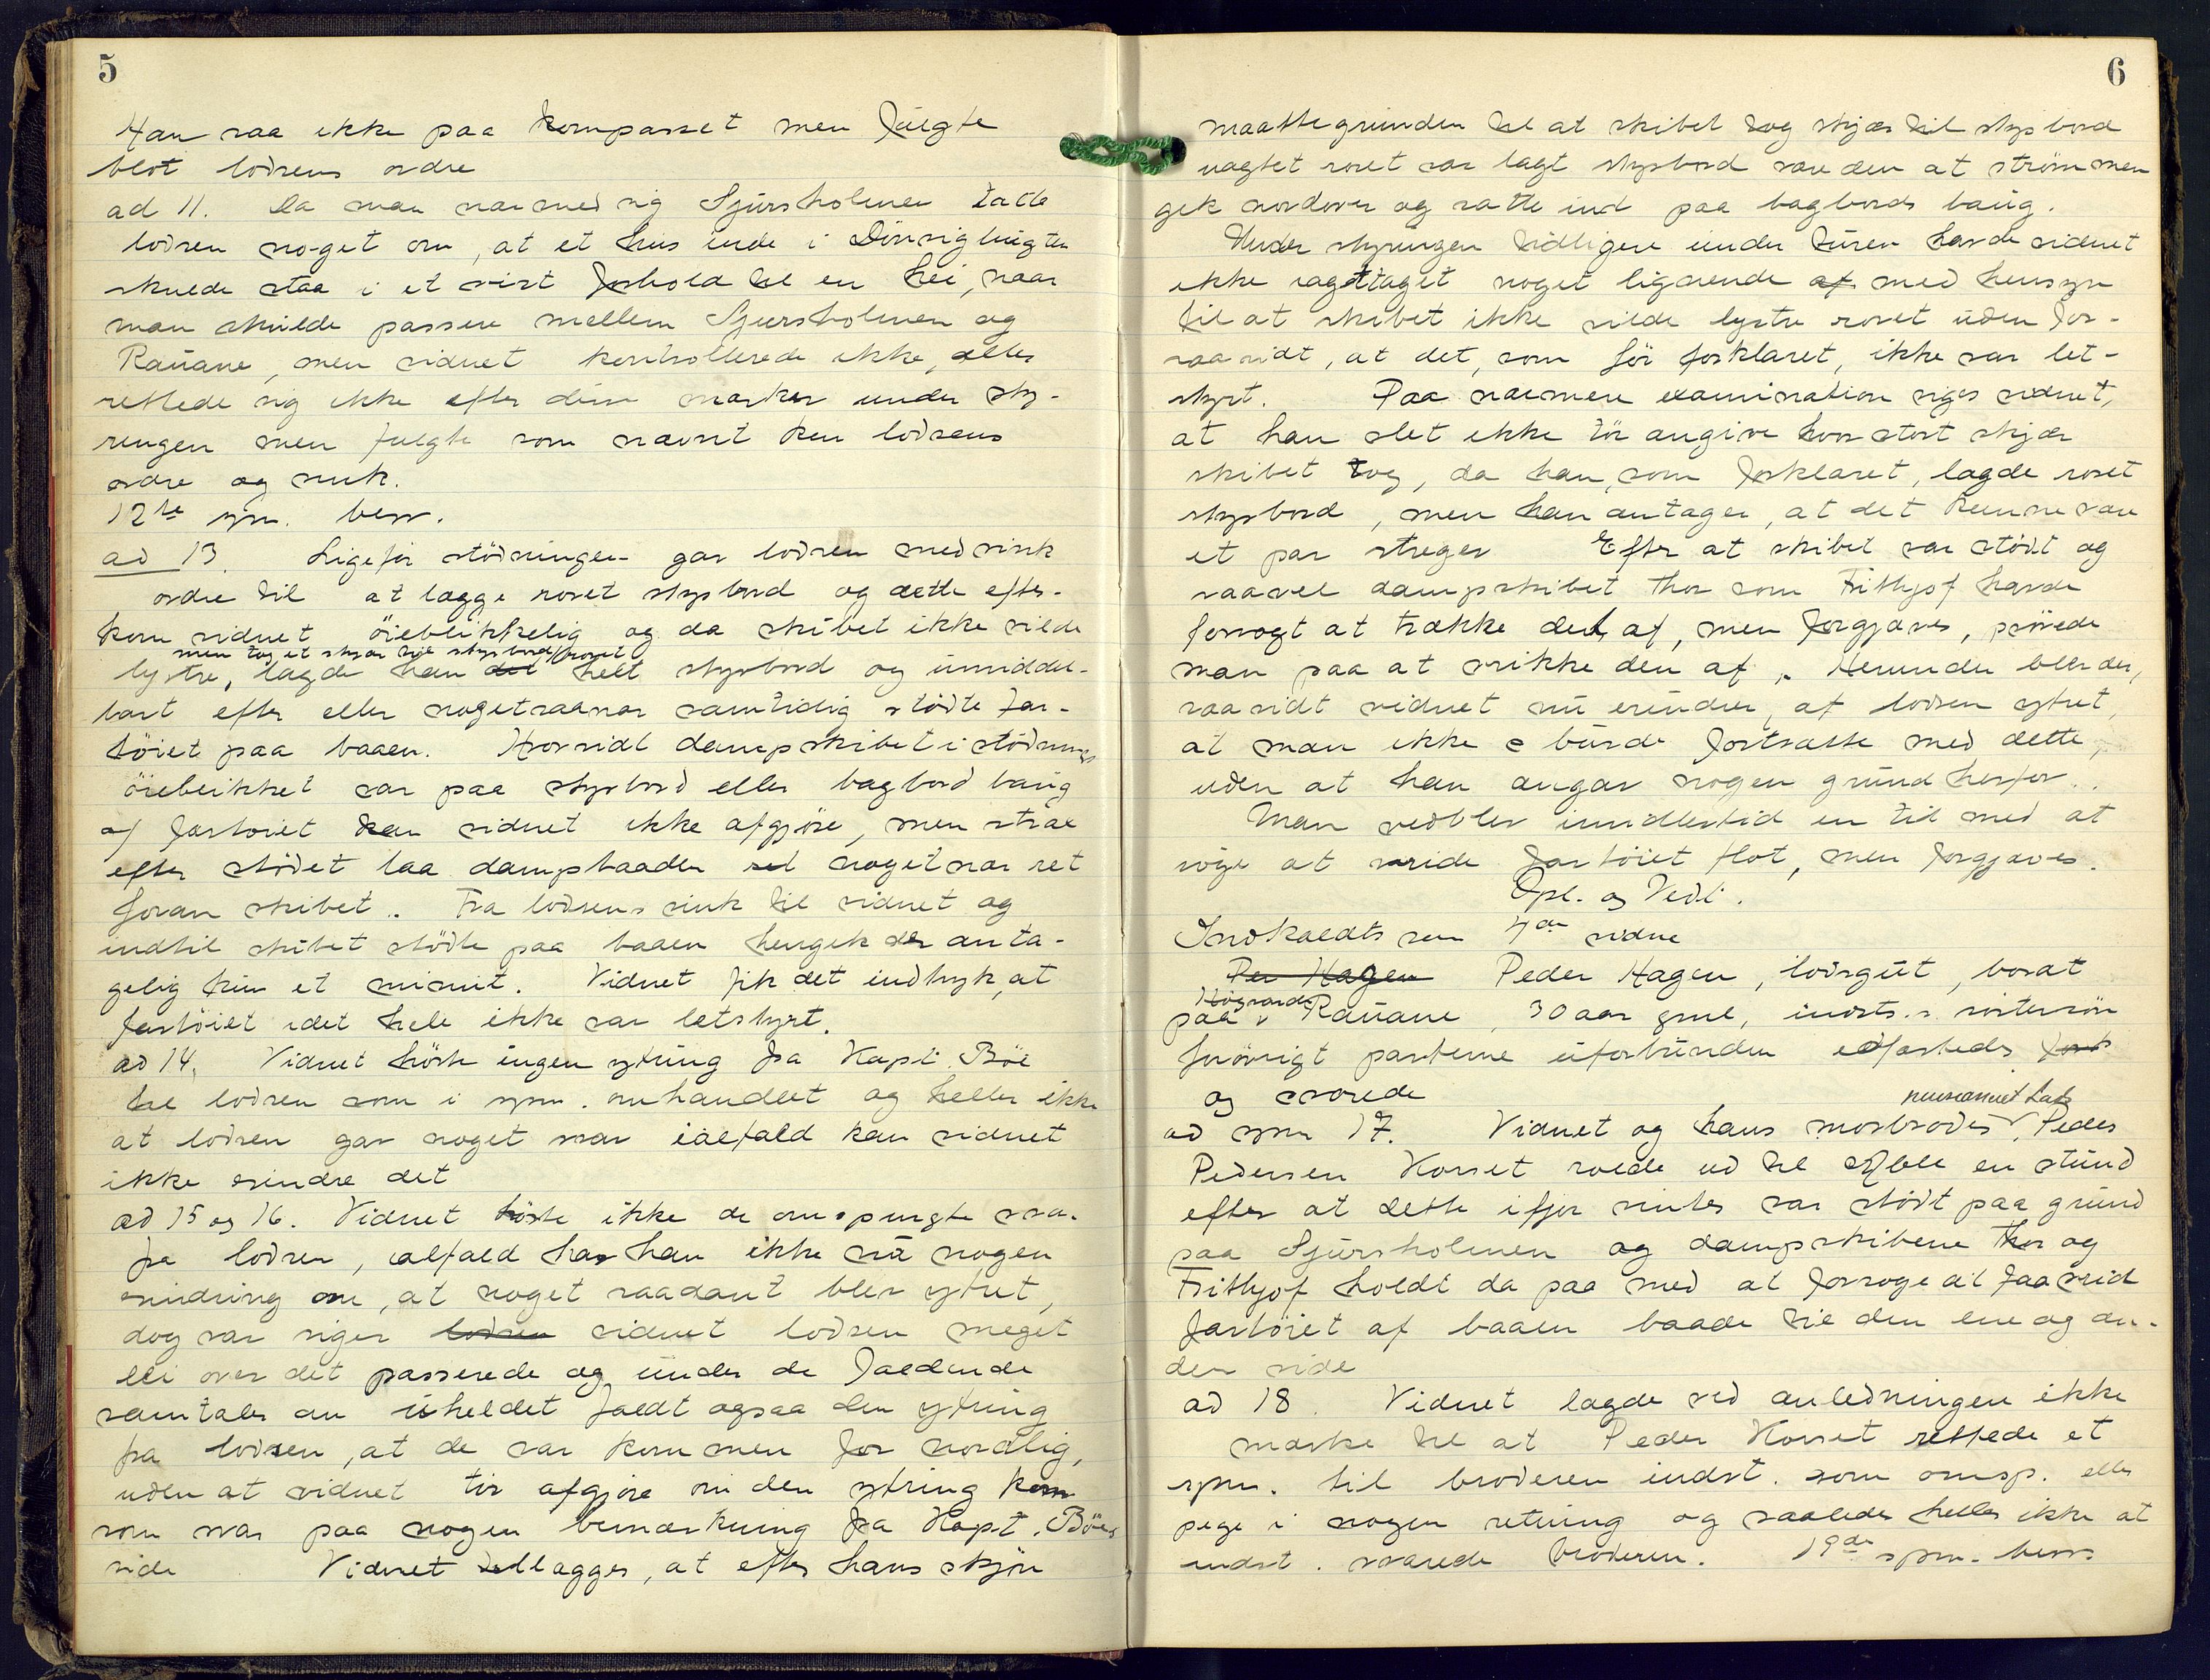 5
Han saa ikke paa kompasset men fulgte
blot lodsens ordre
ad 11. Da man nærmed sig Sjursholmen talte
lodsen noget om, at et hus inde i
skulde staa i et vist forhold til en hei, naar
man skulde passere mellem Sjursholmen og
Rauane, men vidnet kontrollerede ikke, eller
rettede sig ikke efter disse mærker under sty-
ringen men fulgte som nævnt kun lodsens
ordre og vink.
12te spm. besv.
ad 13. Ligefør stødningen gav lodsen med vink
ordre til at lægge roret styrbord og dette efter-
kom vidnet øieblikkelig og da skibet ikke vilde
men tog et skjær til styrbord roret
lystre, lagde han det helt styrbord og umiddel-
bart efter eller noget saanær samtidig stødte far-
tøiet paa baaen. Hvorvidt dampskibet i stødnings
øieblikket var paa styrbord eller bagbord baug
af fartøiet kan vidnet ikke afgjøre, men strax
efter stødet laa dampbaaden ved noget nær ret
foran skibet. Fra lodsens vink til vidnet og
indtil skibet stødte paa baaen hengik der anta-
gelig kun et minut. Vidnet fik det indtryk, at
fartøiet i det hele ikke var letstyrt.
ad 14. Vidnet hørte ingen ytring fra Kapt. Böe
til lodsen som i spm. omhandlet og heller ikke
at lodsen gav noget svar ialfald kan vidnet
ikke erindre det
ad 15 og 16. Vidnet hørte ikke de omspurgte svar
fra lodsen, ialfald har han ikke nu nogen
erindring om, at noget saadant blev ytret,
dog var siger lodsen vidnet lodsen meget
ille over det passerede og under de faldende
samtaler om uheldet faldt ogsaa den ytring
fra lodsen, at de var kommen for nordlig,
uden at vidnet tør afgjøre om den ytring kom
som svar paa nogen bemærkning fra Kapt. Böes
side Vidnet tillægger, at efter hans skjøn
6
maatte grunden til at skibet tog skjær til styrbord
uagtet roret var lagt styrbord være den at strømmen
gik nordover og satte ind paa bagbords baug.
Under styringen tidligere under turen havde vidnet
ikke iagttaget noget lignende af med hensyn
til at skibet ikke vilde lystre roret uden for-
saavidt, at det, som før forklaret, ikke var let-
styrt. Paa nærmere examination siger vidnet,
at han slet ikke tør angive hvor stort skjær
skibet tog, da han, som forklaret, lagde roret
styrbord, men han antager, at det kunne være
et par streger Efter at skibet var stødt og
saavel dampskibet Thor som Frithjof havde
forsøgt at trække det af, men forgjæves, prøvede
man paa at vrikke den af. Herunder blev der,
saavidt vidnet nu erindrer, af lodsen ytret,
at man ikke burde fortsætte med dette,
uden at han angav nogen grund herfor.
Man vedblev imidlertid en tid med at
søge at vride fartøiet flot, men forgjæves.
Opl. og Vedt.
Indkaldts som 4de vidne
Per Hagen Peder Hagen, lodsgut, bosat
paa Rauane, 30 aar gml, indsts. s. søstersøn
forøvrigt parterne uforbunden edfæstedes
og svarede
nuværnæret Lars
ad spm 17. Vidnet og hans morbroder, Peder
Pedersen Korset roede ud til Able en stund
efter at dette ifjor vinter var stødt paa grund
paa Sjursholmen og dampskibene Thor og
Frithjof holdt da paa med at forsøge at faa vrid
fartøiet af baaen baade til den ene og an-
den side
ad 18. Vidnet lagde ved anledningen ikke
mærke til at Peder Korset rettede et
spm. til broderen indst. som omsp. eller
pege i nogen retning og saaledes heller ikke at
indst. svarede broderen. 19de spm. besvs